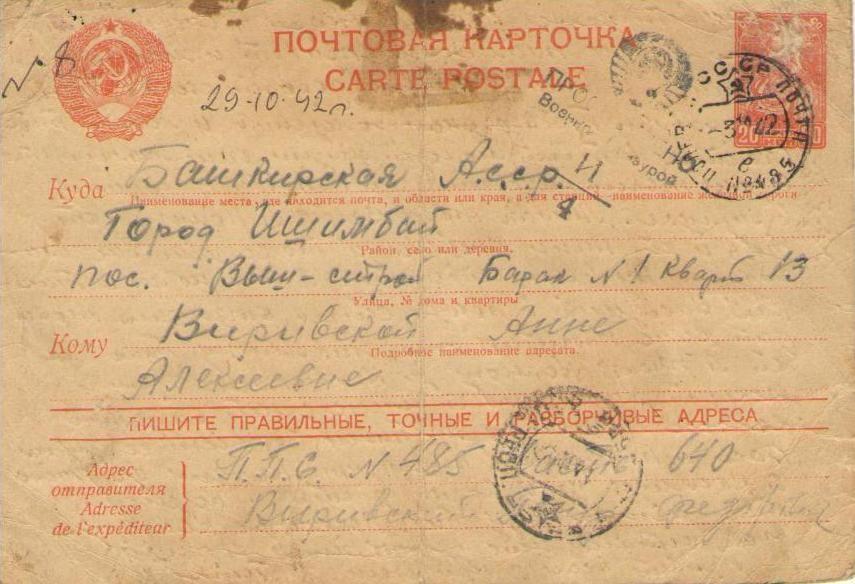 ПОЧТОВАЯ КАРТОЧКА
CARTE POSTALE
№ 8
29-10-42 г.
СССР ПОЧТА
20
Куда Башкирская А.сср.
Наименование места, где находится почта, и области или края, а для станций—наименование железной дороги
Город Ишимбай
Район, село или деревня.
пос. Выш-строй Барак N 1 Кварт 13
Улица, № дома и квартиры
Кому Виривской Анне
Подробное наименование адресата.
Алексеевне
ПИШИТЕ ПРАВИЛЬНЫЕ, ТОЧНЫЕ И РАЗБОРЧИВЫЕ АДРЕСА
Адрес отправителя
Adresse de l'expéditeur
П.П.С. N 485 640
Виривский